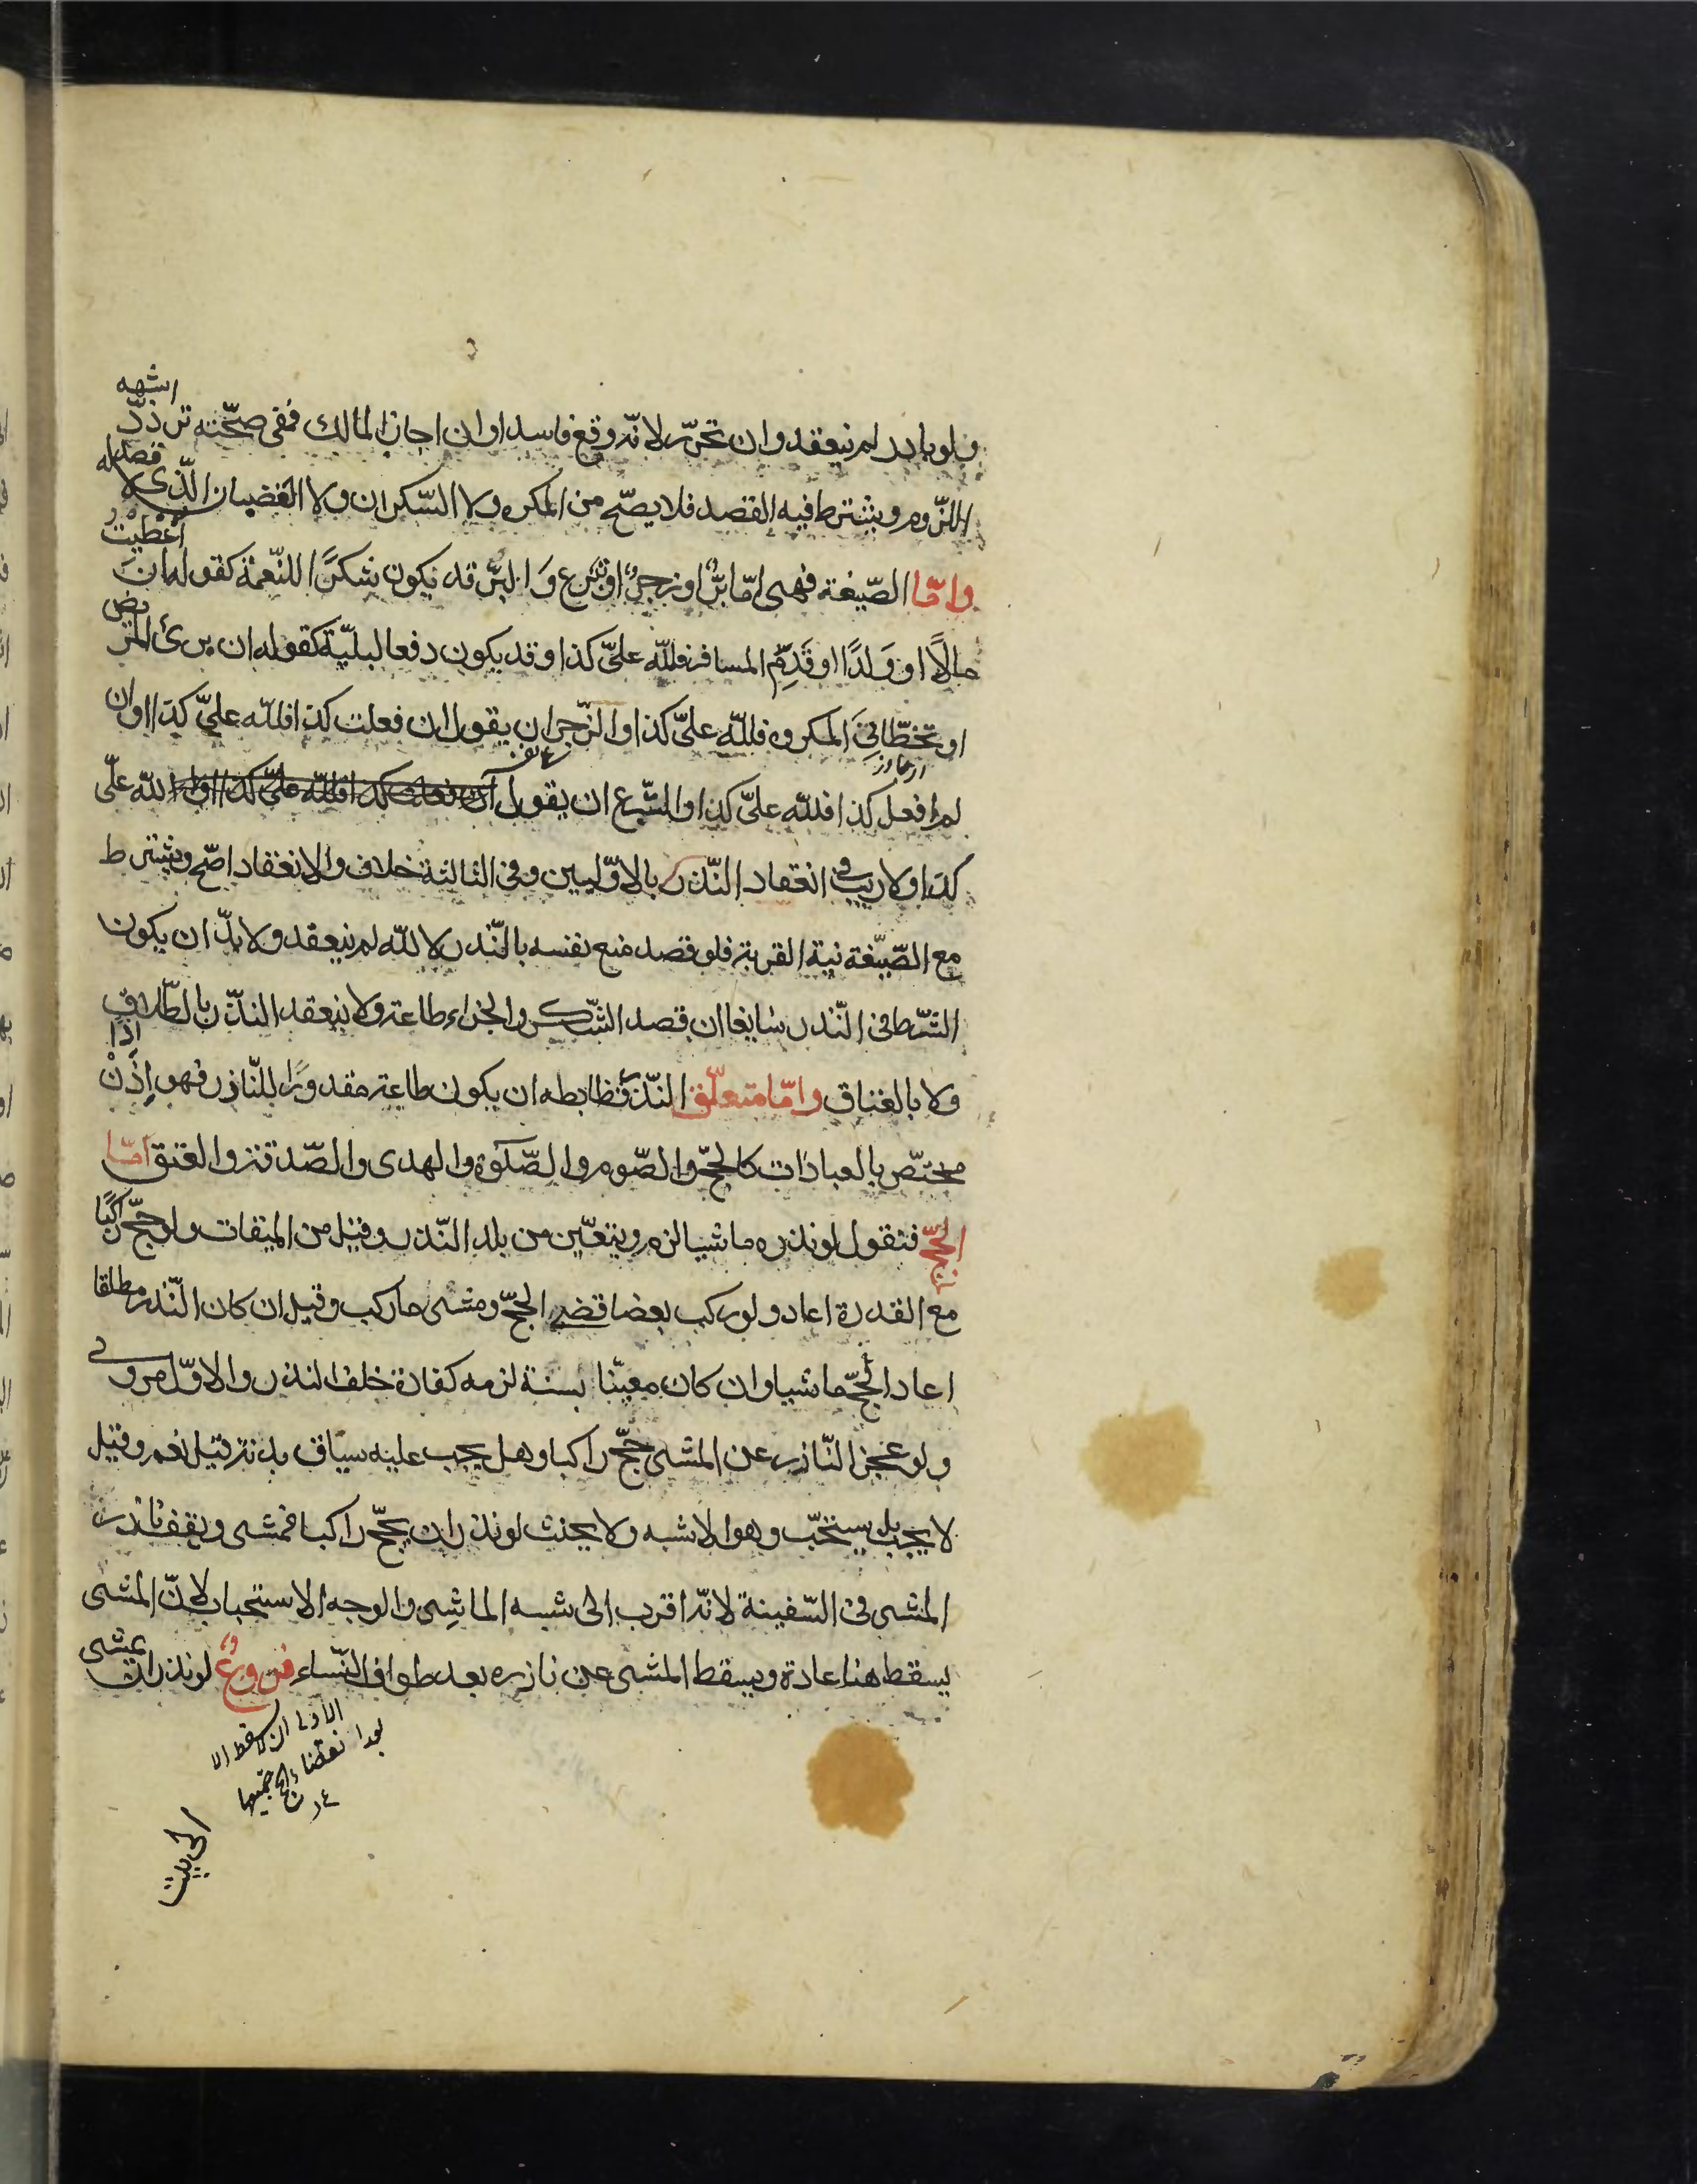 فلو بادر لم ينعقد وان تحرّر لانّه وقع فاسدا وان اجاز المالك ففى صحّته تردّد اشبهه
اللّزوم ويشترط فيه القصد فلا يصحّ من المكره ولا السّكران ولا الغضبان الّذى لا قصد له
وامّا الصّيغة فهى امّا برٌّ او زجرٌ او تبرع وَالبرّ قد يكون شكرًا للنّعمة كقوله ان اُعْطيْتُ
مالًا او وَلدًا او قَدِمَ المسافر فللّه علىّ كذا وقد يكون دفعا لبليّة كقوله ان برئ المريض
او تخطّانىَ المكروه فللّه علىّ كذا والزّجر ان يقول ان فعلت كذا فللّه علىّ كذا او ان
لم افعل كذا فللّه علىّ كذا والتّبرّع ان يقول ان فعلت كذا فللّه علىّ كذا او ان لله علىّ
كذا ولا ريب فى انعقاد النّذر بالاوّليين وفى الثالثة خلاف والانعقاد اصّح ويشترط
مع الصّيغة نية القربة فلو قصد منع نفسه بالنّذر لا للّه لم ينعقد ولا بدّ ان يكون
الشّرط فى النّذر سايغا ان قصد الشّكر والجزاء طاعة ولا ينعقد النذّر بالطّلاق
ولا بالعتاق وامّا متعلّق النّذر فظابطه ان يكون طاعة مقدورًا للنّاذر فهو اِذَنْ اِذًا
مختصّ بالعبادَات كالحجّ والصّوم والصّلوة والهدى والصّدقة والعتق امّا
الحجّ فنقول لو نذره ماشيا لزم ويتعيّن من بلد النّذر وقيل من الميقات ولو حجّ راكبًا
مع القدرة اعاد ولو ركب بعضا قضى الحجّ ومشى ما ركب وقيل ان كان النّذر مطلقا
اعاد الحجّ ماشيا وان كان معيّنا بسنة لزمه كفارة خلف النذر والاوّل مروى
ولو عجز النّاذر عن المشى حجّ راكبا وهل يجب عليه سياق بدنة قيل نعم وقيل
لا يجب بل يستحّب وهو الاشبه ولا يحنث لو نذر ان يحجّ راكبا فمشى ويقف ناذر
المشى فى السّفينة لانّه اقرب الى شبه الماشِى والوجه الاستحباب لانّ المشى
يسقط هنا عادة ويسقط المشى عن ناذره بعد طواف النّساء فروعٌ لو نذر ان يمشى
الى بيت